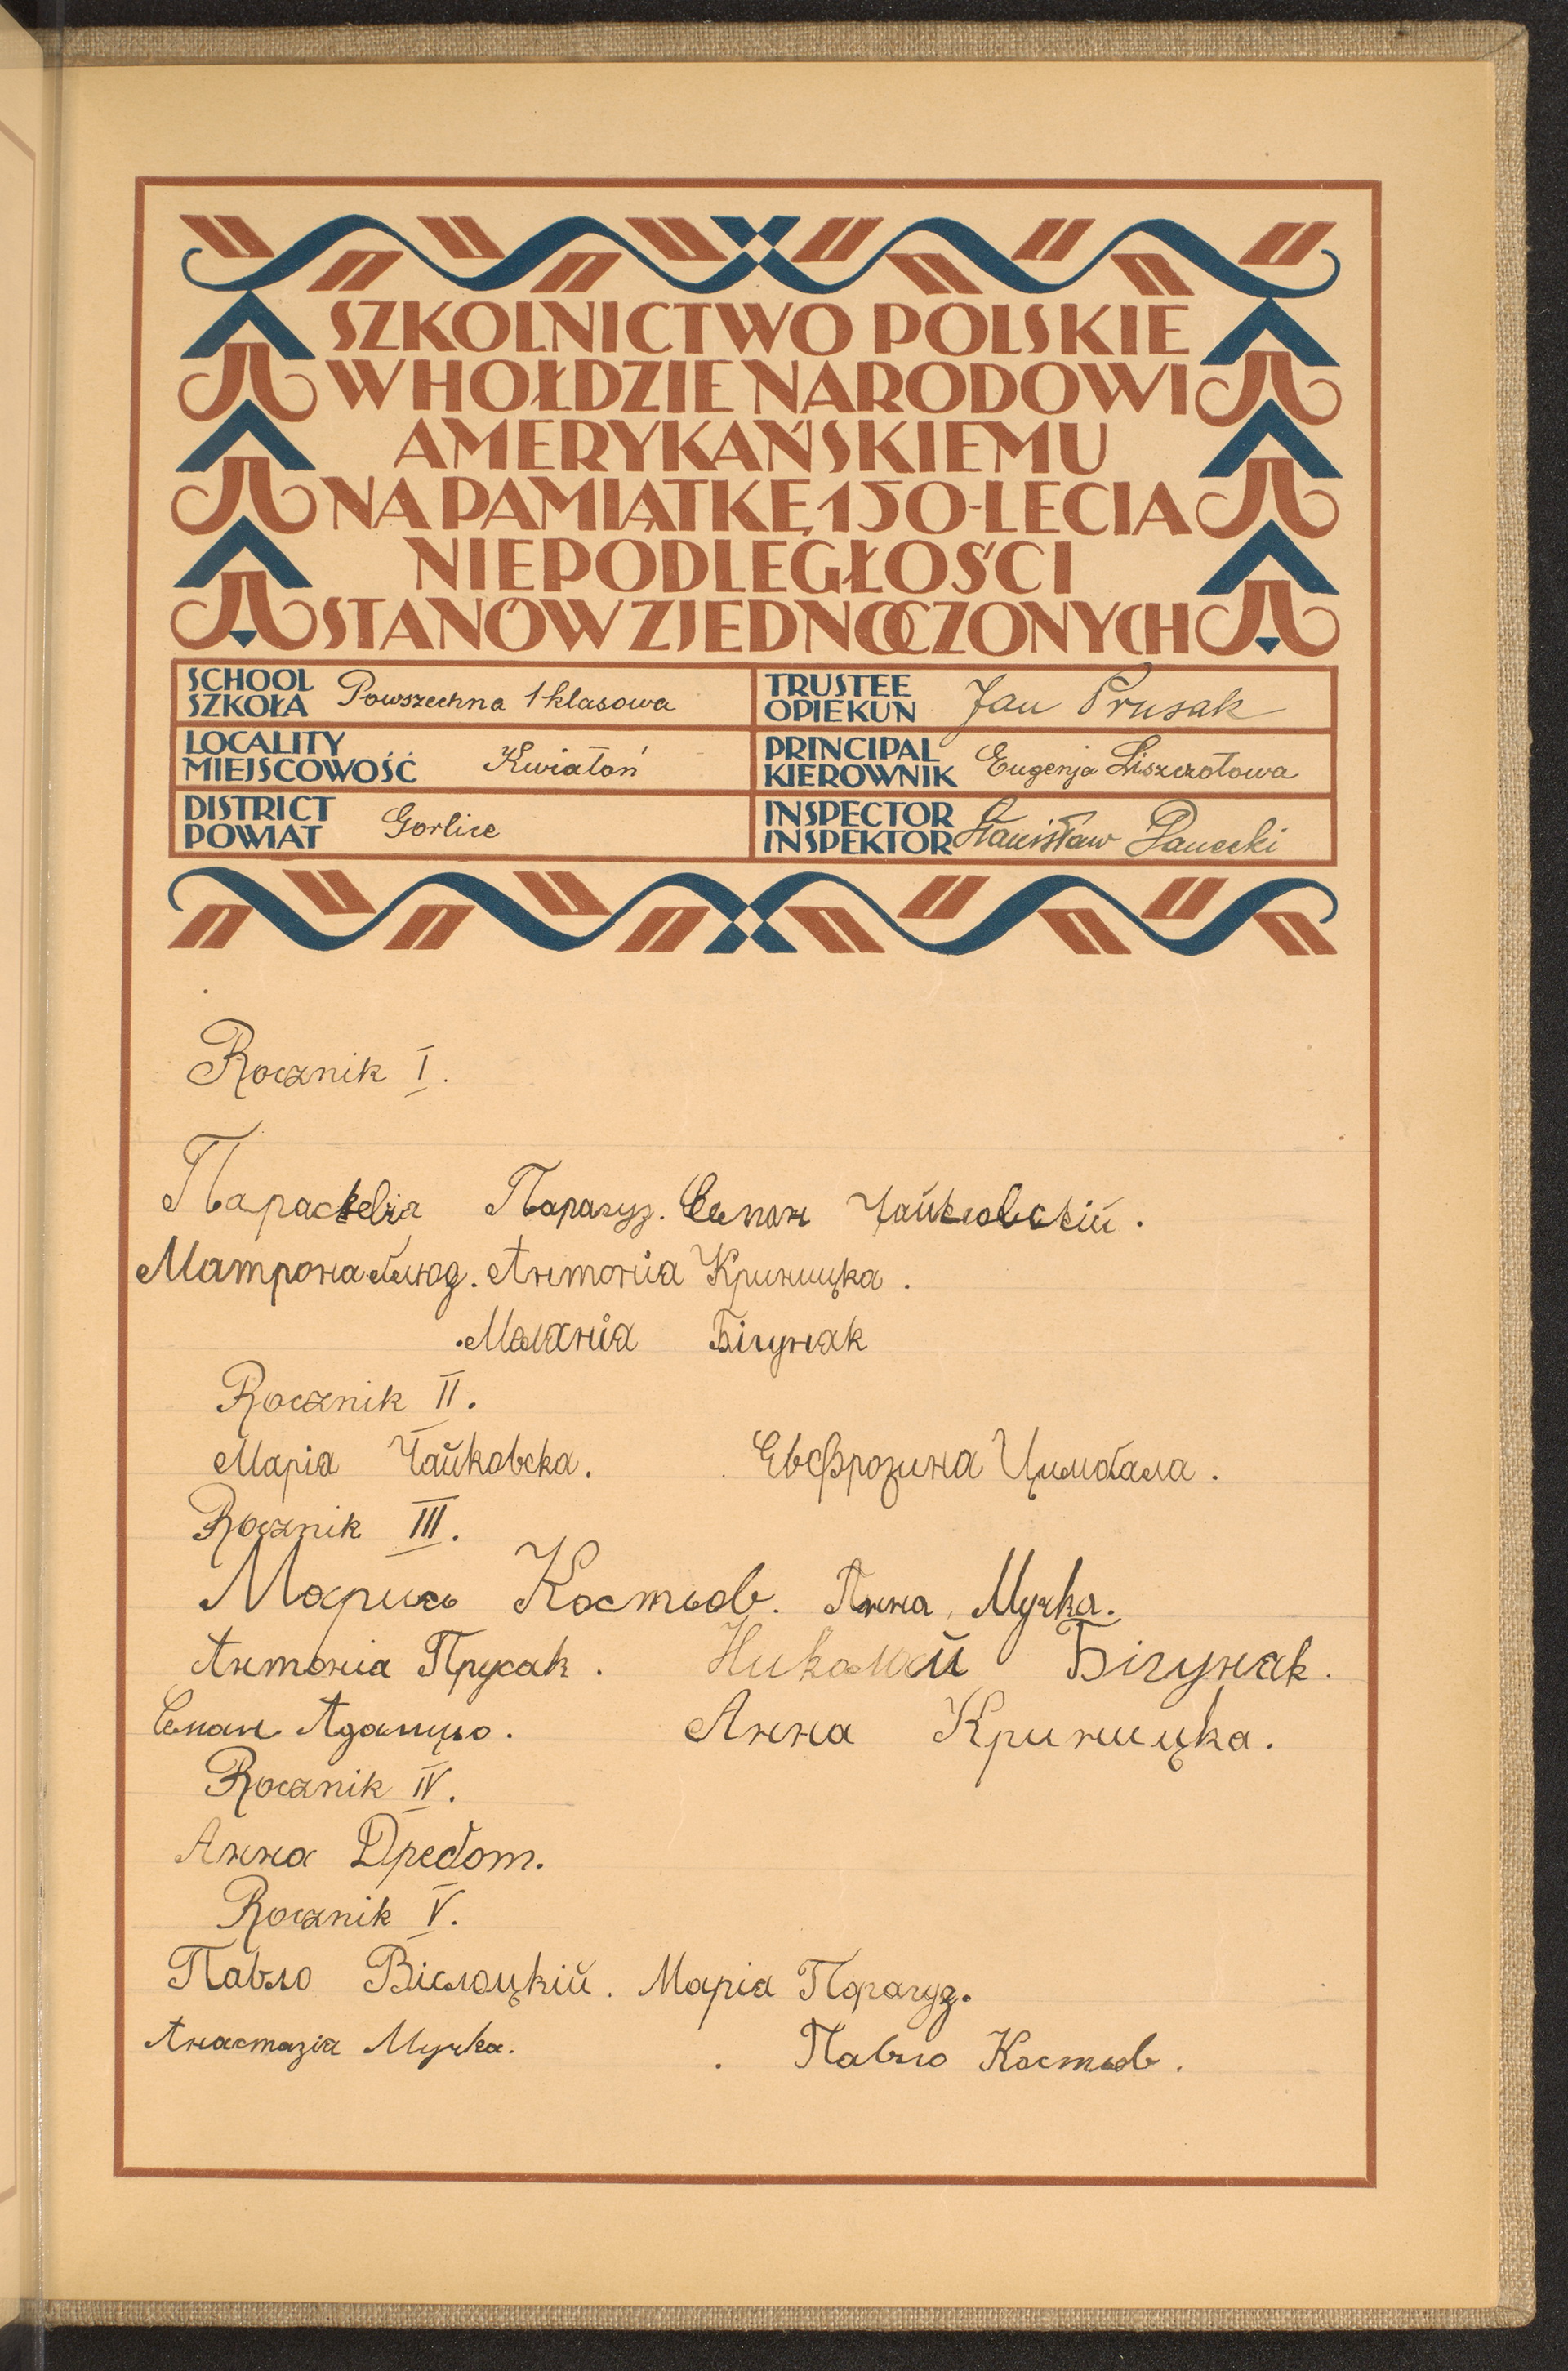 SZKOLNICTWO POLSKIE
W HOŁDZIE NARODOWI
AMERYKAŃSKIEMU
NA PAMIĄTKĘ 150-LECIA
NIEPODLEGŁOŚCI
STANÓW ZJEDNOCZONYCH
SCHOOL
SZKOŁA Powszechna 1 klasowa
TRUSTEE
OPIEKUN Jan Prusak
LOCALITY
MIEJSCOWOŚĆ Kwiatoń
PRINCIPAL
KIEROWNIK Eugenja Liszczotowa
DISTRICT
POWIAT Gorlice
INSPECTOR
INSPEKTOR Stanisław Panecki
Rocznik I.
Параскевія Парагуз. Семан Чайковскій.
Матрона Антонія Криницка.
Меланія Бігуняк
Rocznik II.
Марія Чайковска. Евфрозина Цимбала.
Rocznik III.
Марись Костьов. Анна Мучка.
Антонія Прусак. Николай Бігуняк.
Семан Адамцьо. Анна Криницка.
Rocznik IV.
Анна Дребот.
Rocznik V.
Павло Віслоцкій. Марія Парагуз.
Анастазія Мучка. Павло Костьов.